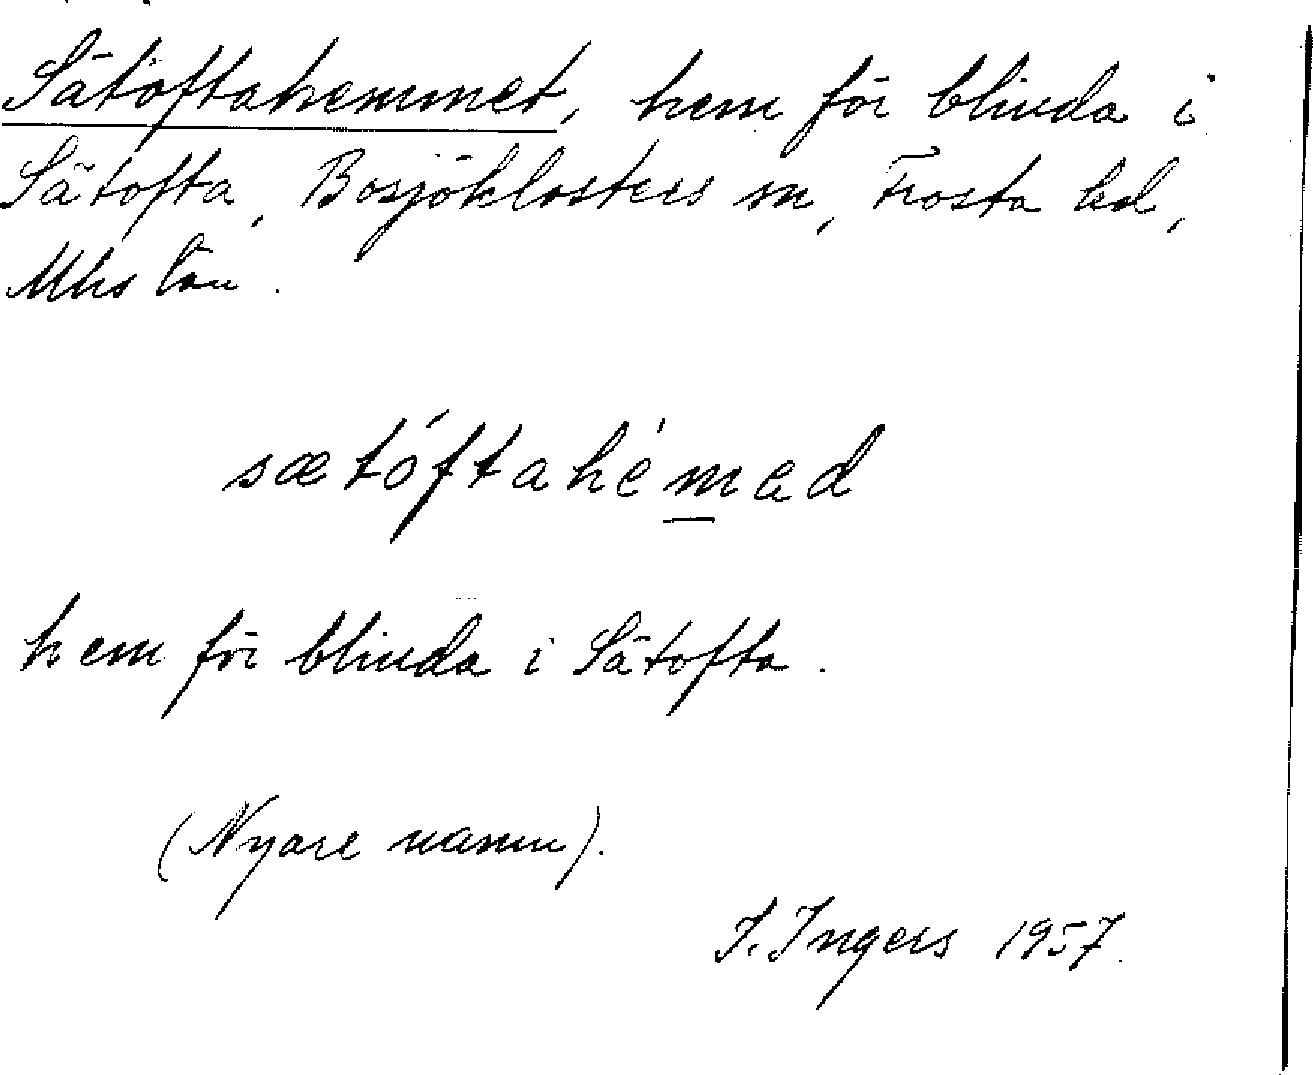 Sätoftahemmet, hem för blinda i
Sätofta, Bosjöklosters sn, Frosta hd,
Mhs län.
sætóftahémad
hem för blinda i Sätofta.
(Nyare namn).
I. Ingers 1957.